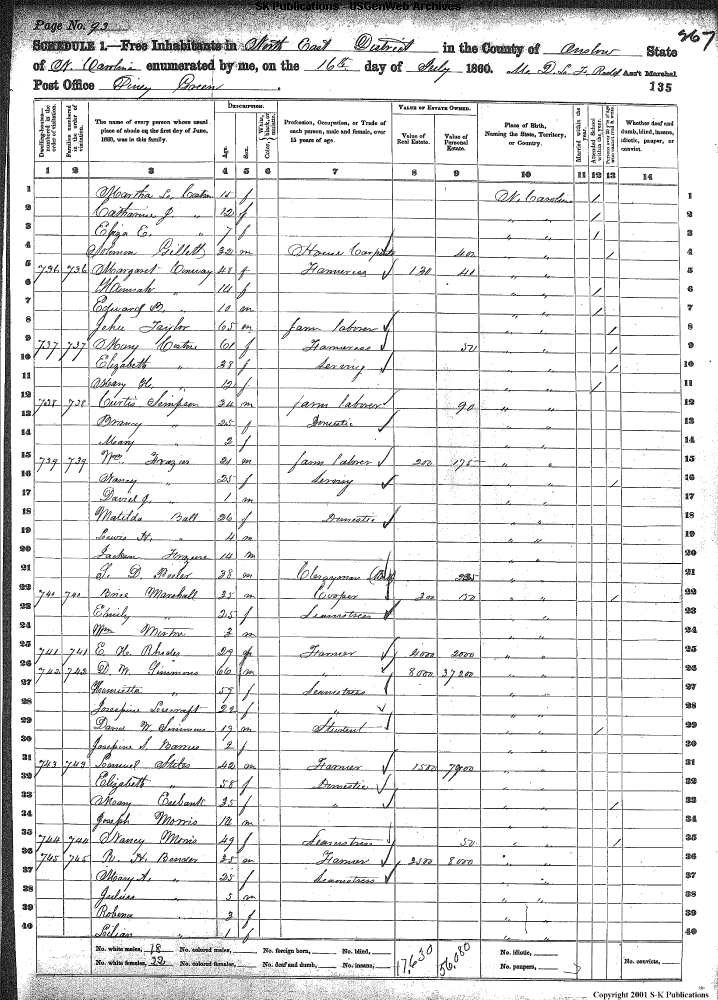 SK Publications - USGenWeb Archives
Page No. 93
367
SCHEDULE 1.—Free Inhabitants in North East District in the County of Onslow State
of N. Carolina enumerated by me, on the 16th day of July 1860. Ass't Marshal
Post Office Piney Green
135
Dwelling-houses— numbered in the order of visitation.
Families numbered in the order of visitation.
The name of every person whose usual place of abode on the first day of June, 1860, was in this family.
DESCRIPTION.
Age.
Sex.
Color, White, black, or mulatto.
Profession, Occupation, or Trade of each person, male and female, over 15 years of age.
VALUE OF ESTATE OWNED.
Value of Real Estate.
Value of Personal Estate.
Place of Birth, Naming the State, Territory, or Country.
Married within the year.
Attended School within the year.
Whether deaf and dumb, blind, insane, idiotic, pauper, or convict.
1 2 3 4 5 6 7 8 9 10 11 12 13 14
1 Martha 15 f N. Carolina / 1
2 Catharine J. " 12 f " " / 2
3 Eliza E. " 7 f " " / 3
4 Solomon Gillett 32 m House Carpenter 400 " " / 4
5 736 736 Margaret 48 f Farmeress 40 " " 5
6 Hannah " 14 f " " / 6
7 Edward " 10 m " " / 7
8 Jehu Taylor 65 m farm laborer " " / 8
9 737 737 Mary 61 f Farmeress 50 " " / 9
10 Elizabeth " 28 f " " / 10
11 Mary " 12 f " " / 11
12 738 738 Curtis Simpson 24 m farm laborer 90 " " 12
13 " 25 f Domestic " " 13
14 Mary " 2 f " " 14
15 739 739 Wm. Frazier 21 m farm laborer 200 175 " " 15
16 Nancy " 25 f " " / 16
17 David J. " 1 m " " 17
18 Matilda Ball 26 f Domestic " " 18
19 Lewis H. " 4 m " " 19
20 Jackson 14 m " " 20
21 D. 38 m Clergyman " " 21
22 740 740 Brice Marshall 35 m Cooper 200 150 " " / 22
23 Emily " 25 f Seamstress " " 23
24 Wm 3 m " " 24
25 741 741 E. H. Rhodes 29 Farmer 4000 2000 " " 25
26 742 742 D. W. Simmons 60 m " 8000 37200 " " 26
27 Henrietta " 59 f Seamstress " " 27
28 Josephine 22 f " " " 28
29 David W. Simmons 19 m Student " " / 29
30 Josephine S. Barnes 2 f " " 30
31 743 743 Samuel Stiles 42 m Farmer 1500 " " 31
32 Elizabeth " 58 f Domestic " " 32
33 Mary Eubank 35 f " " " / 33
34 Joseph Morris 12 m " " 34
35 744 744 Nancy Morris 49 f Seamstress 50 " " / 35
36 745 745 R. H. Bender 35 m Farmer 2500 8000 " " 36
37 Mary A. " 25 f Seamstress " " 37
38 Julius " 5 m " " 38
39 Robena " 3 f " " 39
40 Lilian " 1 f " " 40
No. white males, 18 No. colored males, No. foreign born, No. blind, 17,630 56,080 No. idiotic,
No. white females, 22 No. colored females, No. deaf and dumb, No. insane, No. paupers, No. convicts,
Copyright 2001 S-K Publications